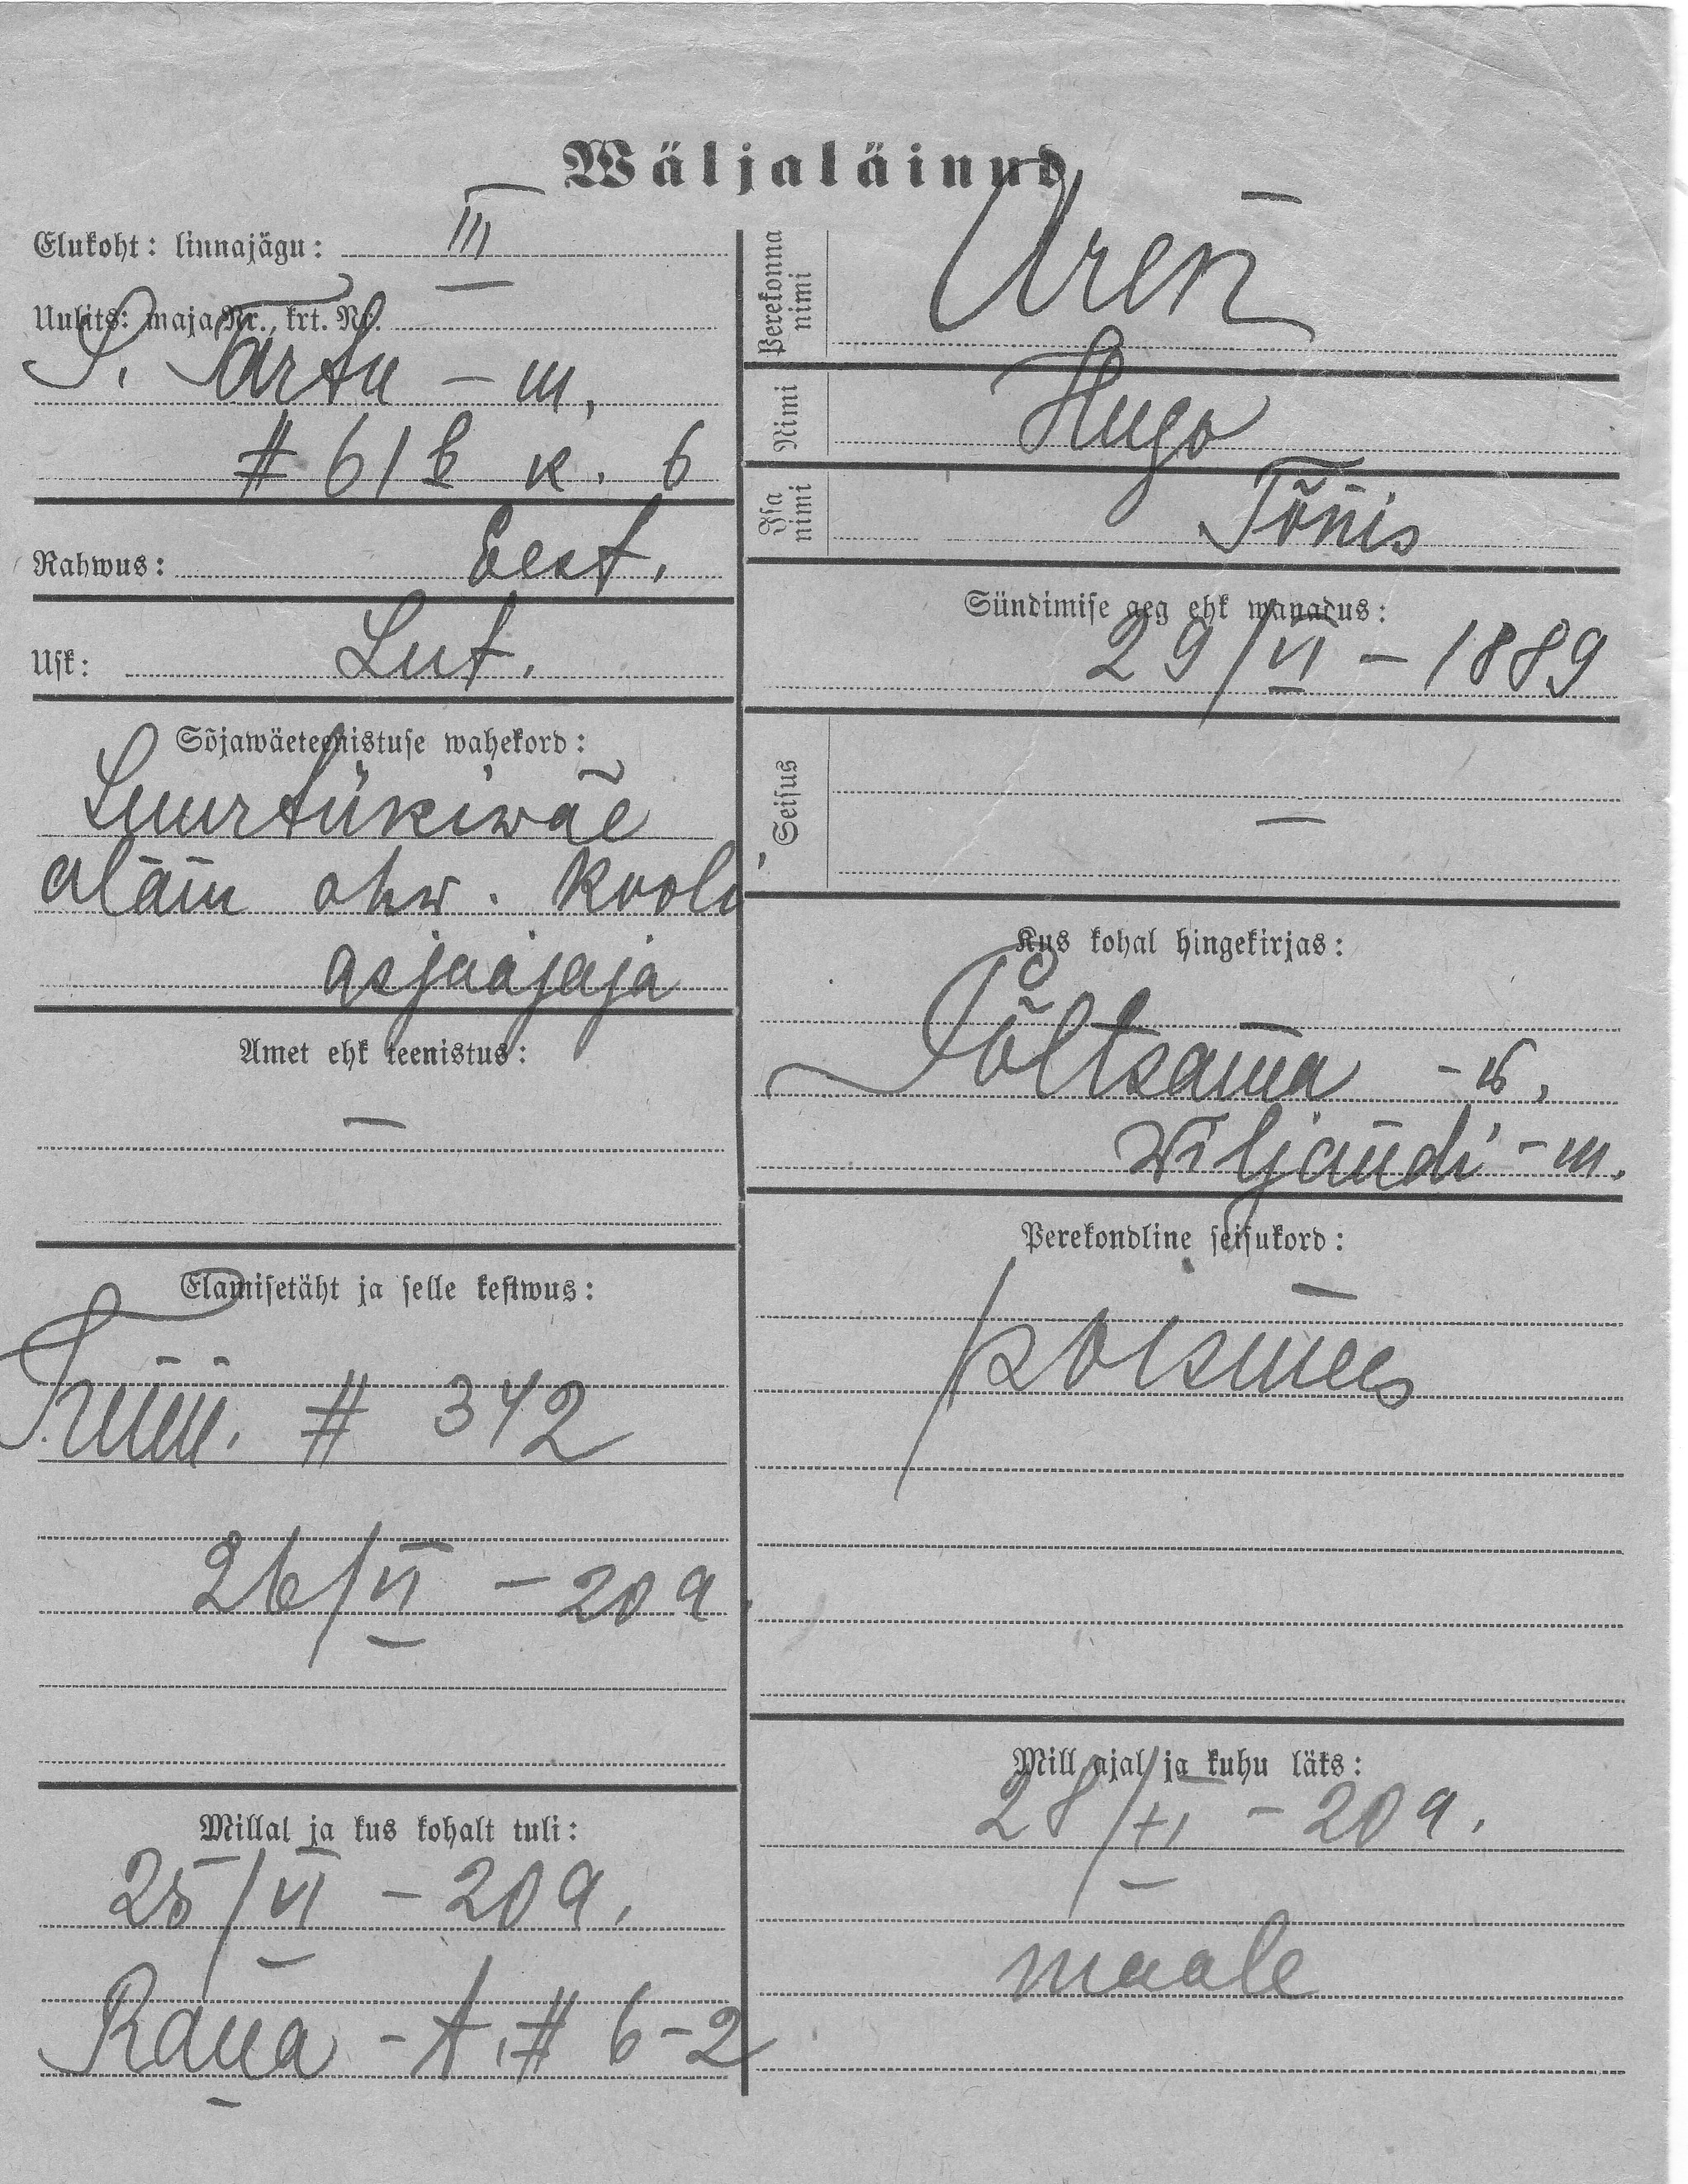 Wäljaläinud
Elukoht: linnajägu: III
Uulits: maja Nr., krt. Nr.
S. Tartu – m,
# 61 b k. 6
Rahwus: Eest.
Usk: Lut.
Sõjawäeteenistuse wahekord:
Suurtükiwäe
aläm ohw. kooli
asjaajaja
Amet ehk teenistus:
—
Elamisetäht ja selle kestwus:
# 342
26/VI – 20 a
Millal ja kus kohalt tuli:
25/VI – 20 a.
Raua – t. # 6–2
Perekonna nimi Uren
Nimi Hugo
Isa nimi Tõnis
Sündimise aeg ehk wanadus:
29/VI – 1889
Seisus —
Kus kohal hingekirjas:
Põltsama – w.
Wiljandi – m.
Perekondline seisukord:
poismees
Mill ajal ja kuhu läks:
28/XI – 20 a.
maale